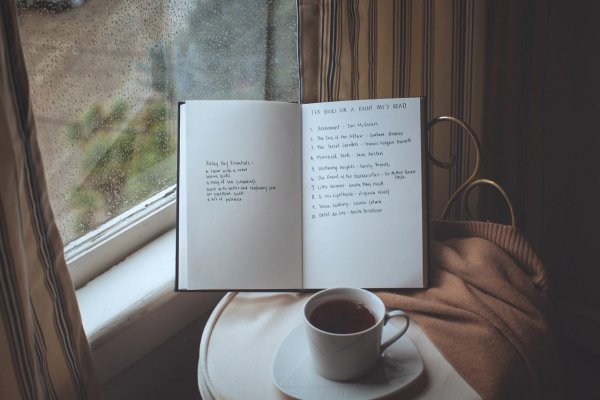 Rainy Day Essentials:
a room with a view
warm socks
a mug of tea (steaming)
toast with butter and raspberry jam
an excellent book
a bit of patience
TEN BOOKS FOR A RAINY DAY'S READ
1. Atonement - Ian McEwan
2. The End of the Affair - Graham Greene
3. The Secret Garden - Frances Hodgson Burnett
4. Mansfield Park - Jane Austen
5. Wuthering Heights - Emily Brontë
6. The Hound of the Baskervilles - Sir Arthur Conan Doyle
7. Little Women - Louisa May Alcott
8. To the Lighthouse - Virginia Woolf
9. Home Cooking - Laurie Colwin
10. Hotel du Lac - Anita Brookner